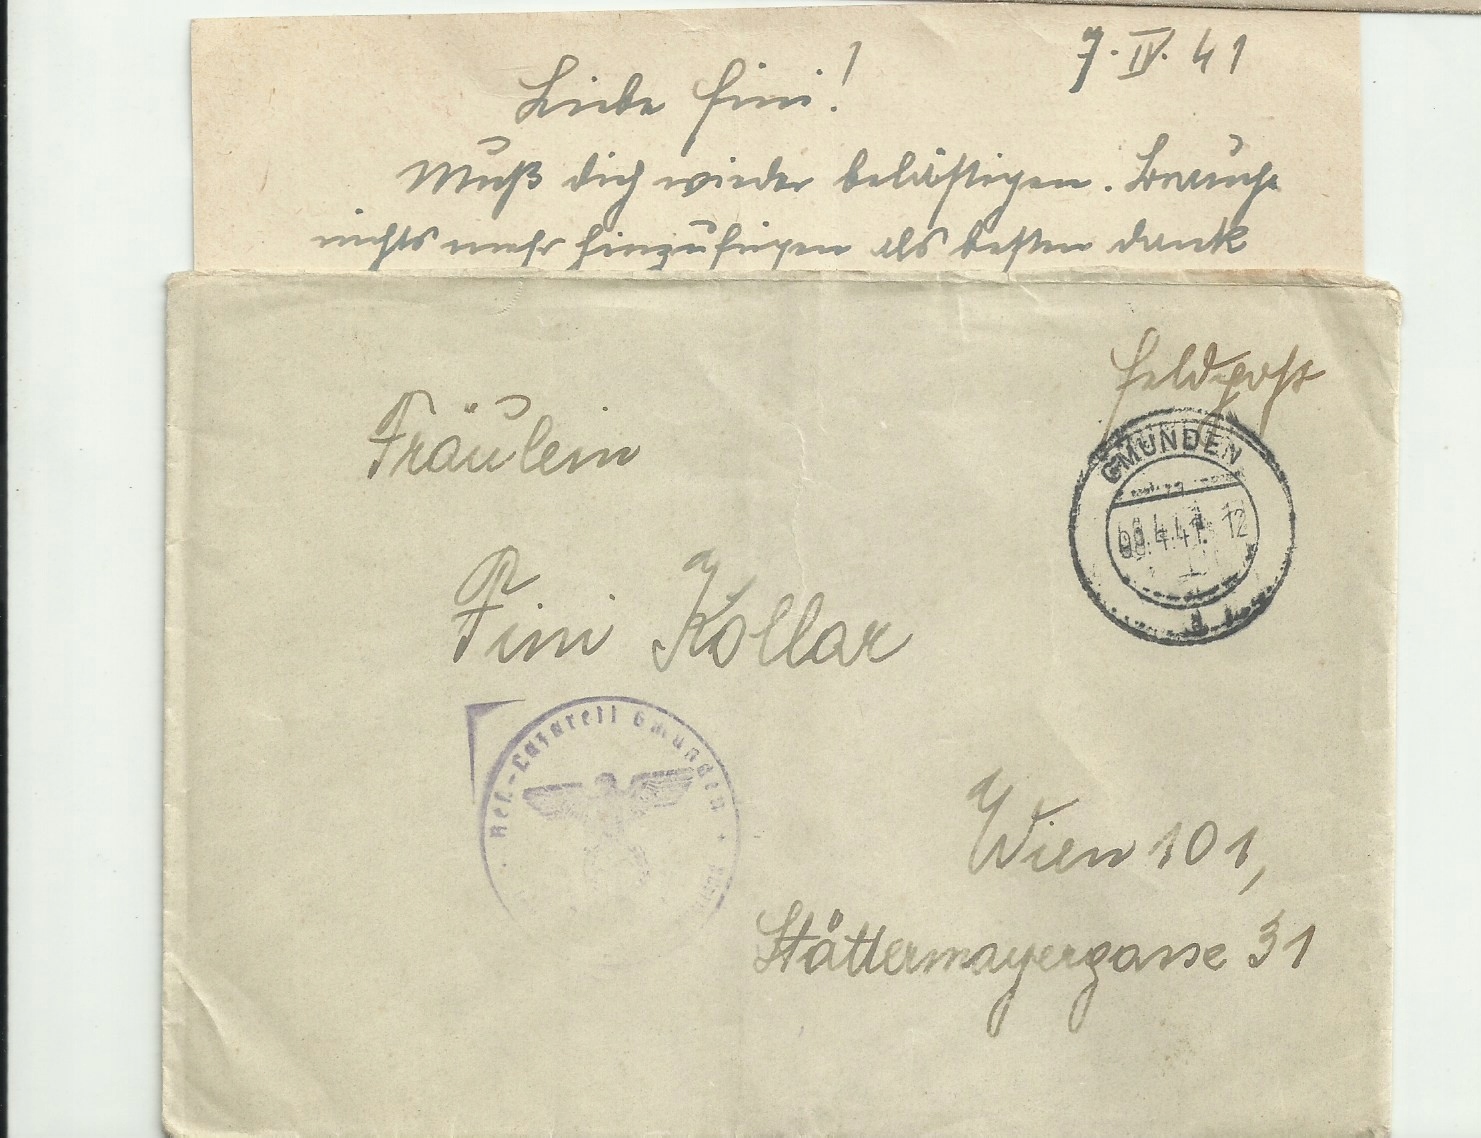 7. IV. 41
Liebe Fini!
Muß dich wieder belästigen. Brauche
nichts mehr hinzufügen als besten dank
Feldpost
Fräulein
Fini Kollar
GMUNDEN
.4.41. 12
Res.-Lazarett Gmunden
Wien 101,
Stättermayergasse 31